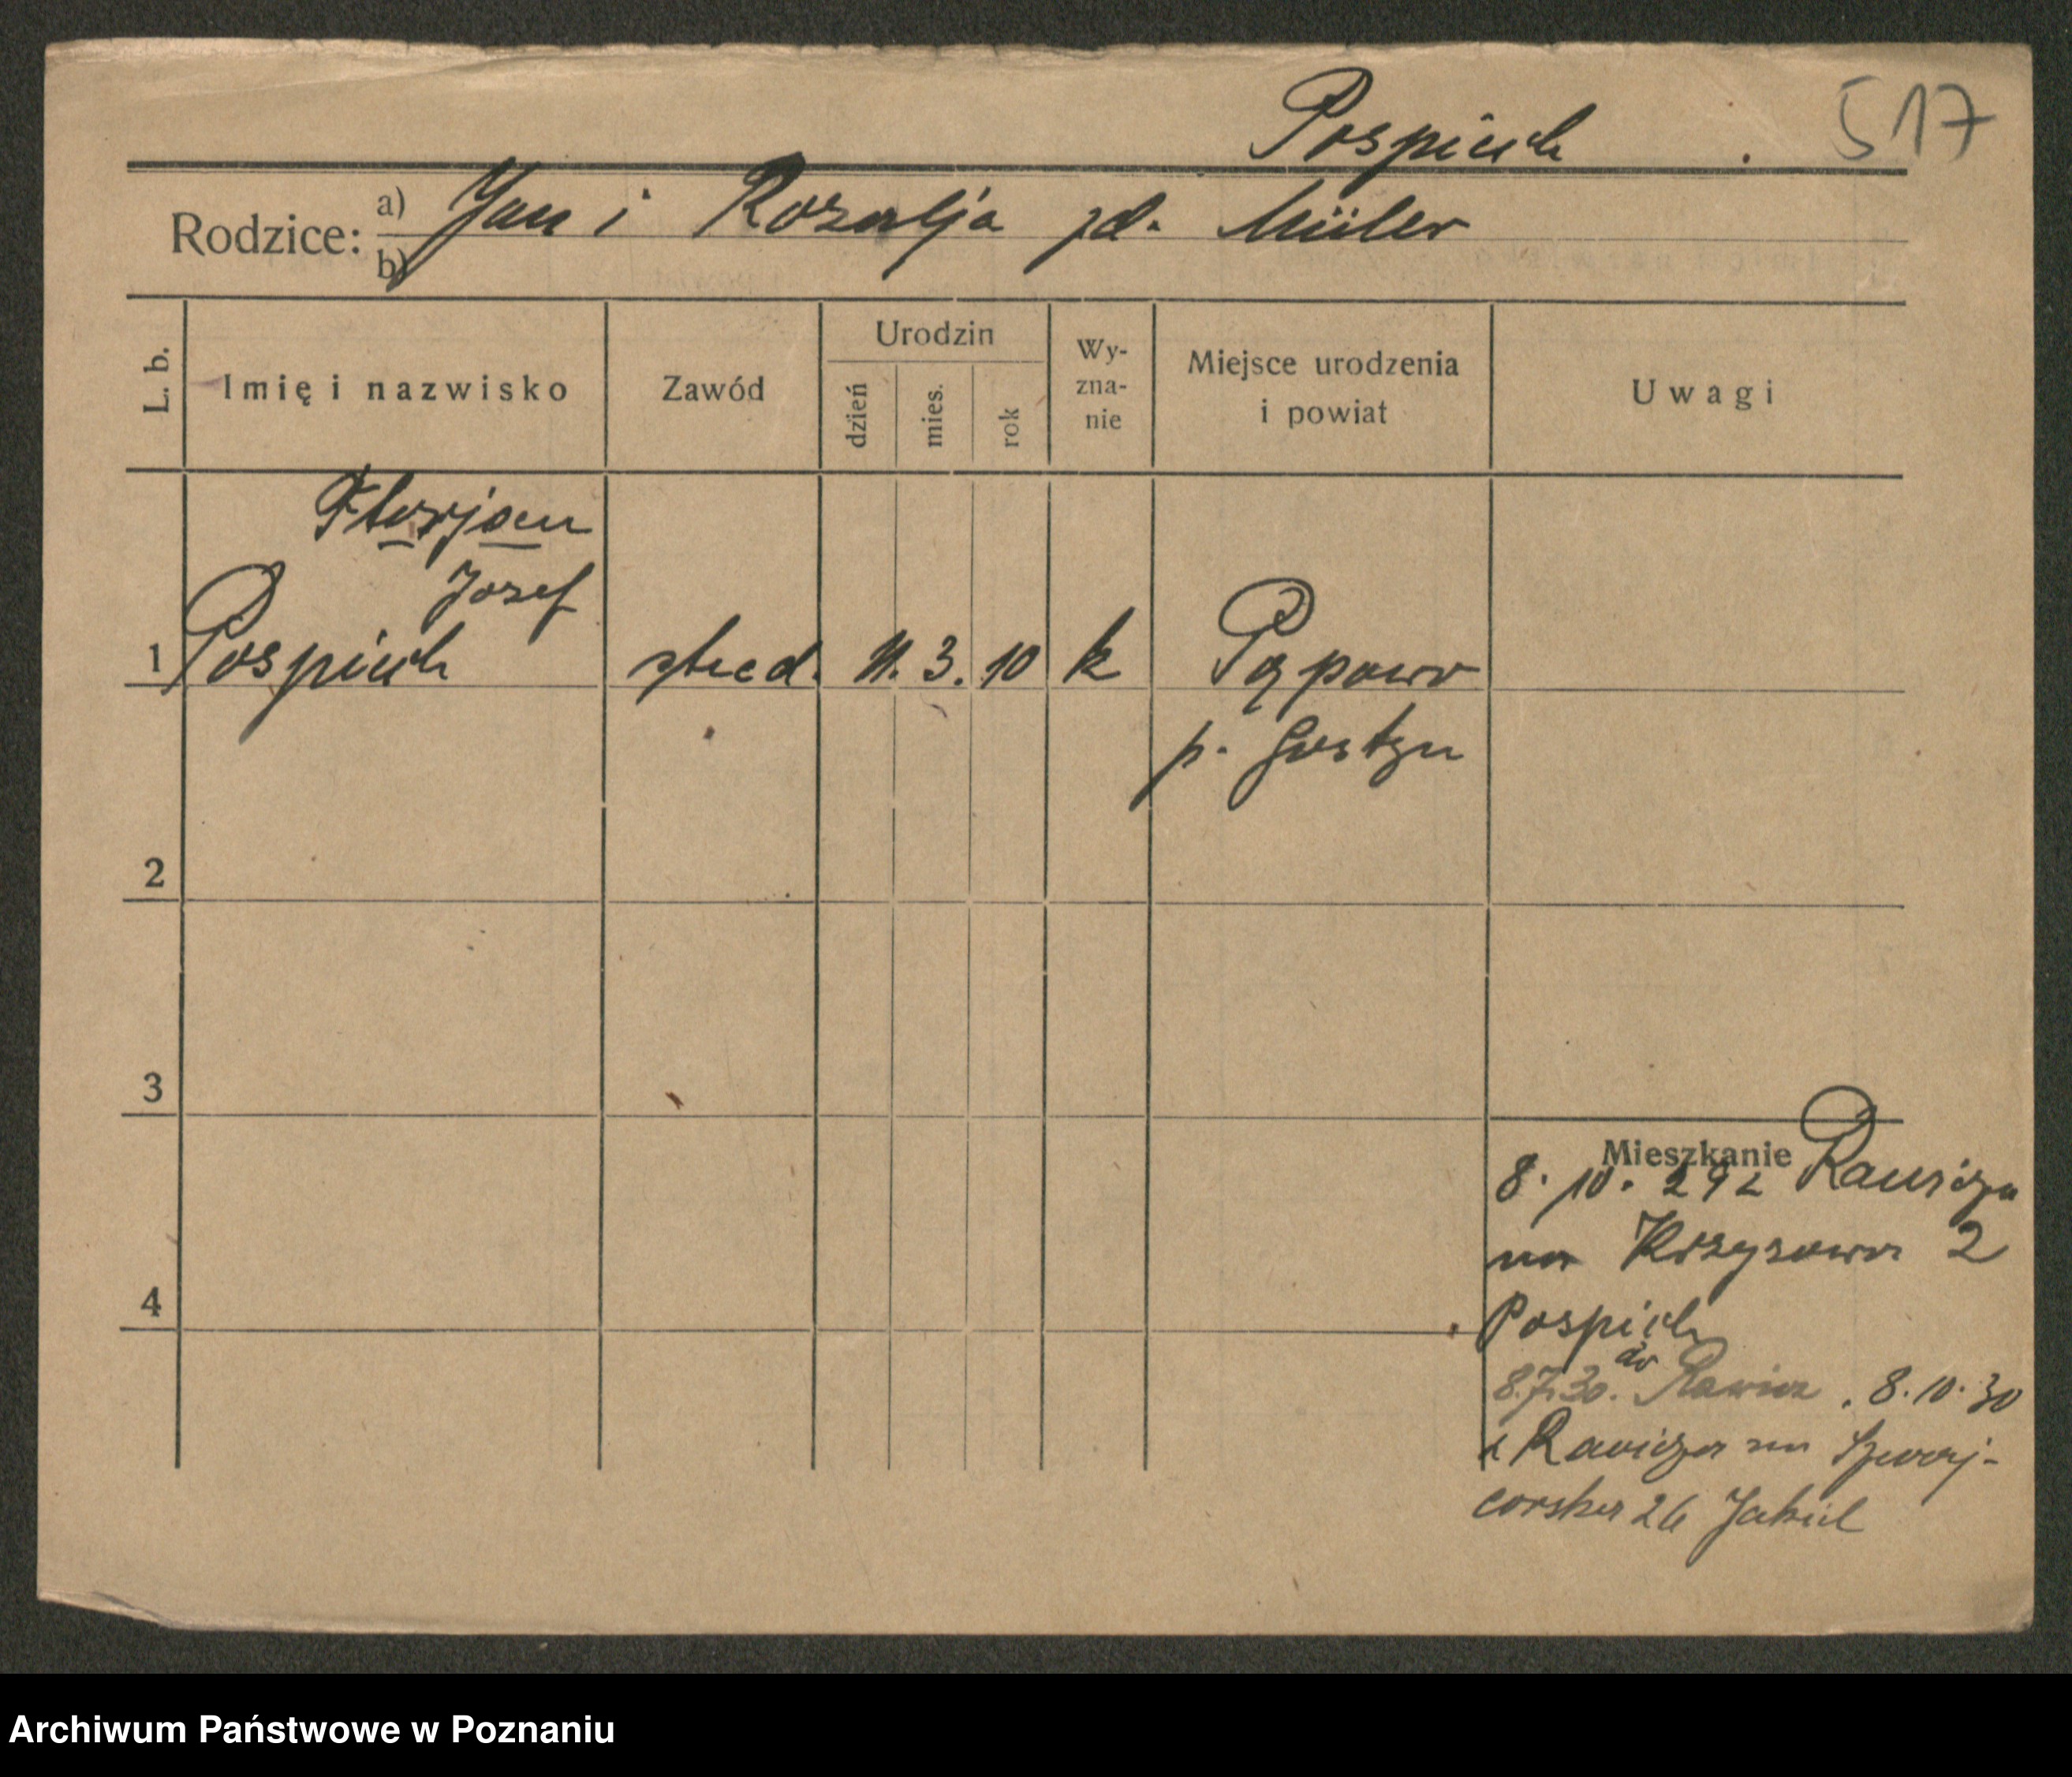 Pospiech 517
Rodzice: a) Jan i Rozalja zd. Müller
b)
L. b. Imię i nazwisko Zawód Urodzin dzień mies. rok Wy-zna-nie Miejsce urodzenia i powiat Uwagi
Florjan
Jozef
1 Pospiech 11. 3. 10 k Pępowo
p. Gostyn
2
3
Mieszkanie
8. 10. 29 z Rawicza
na Krzyzowa 2
4
Pospiech
8.7.30. do Rawicz. 8.10.30
z Rawicza na Szwaj-
carska 26
Archiwum Państwowe w Poznaniu